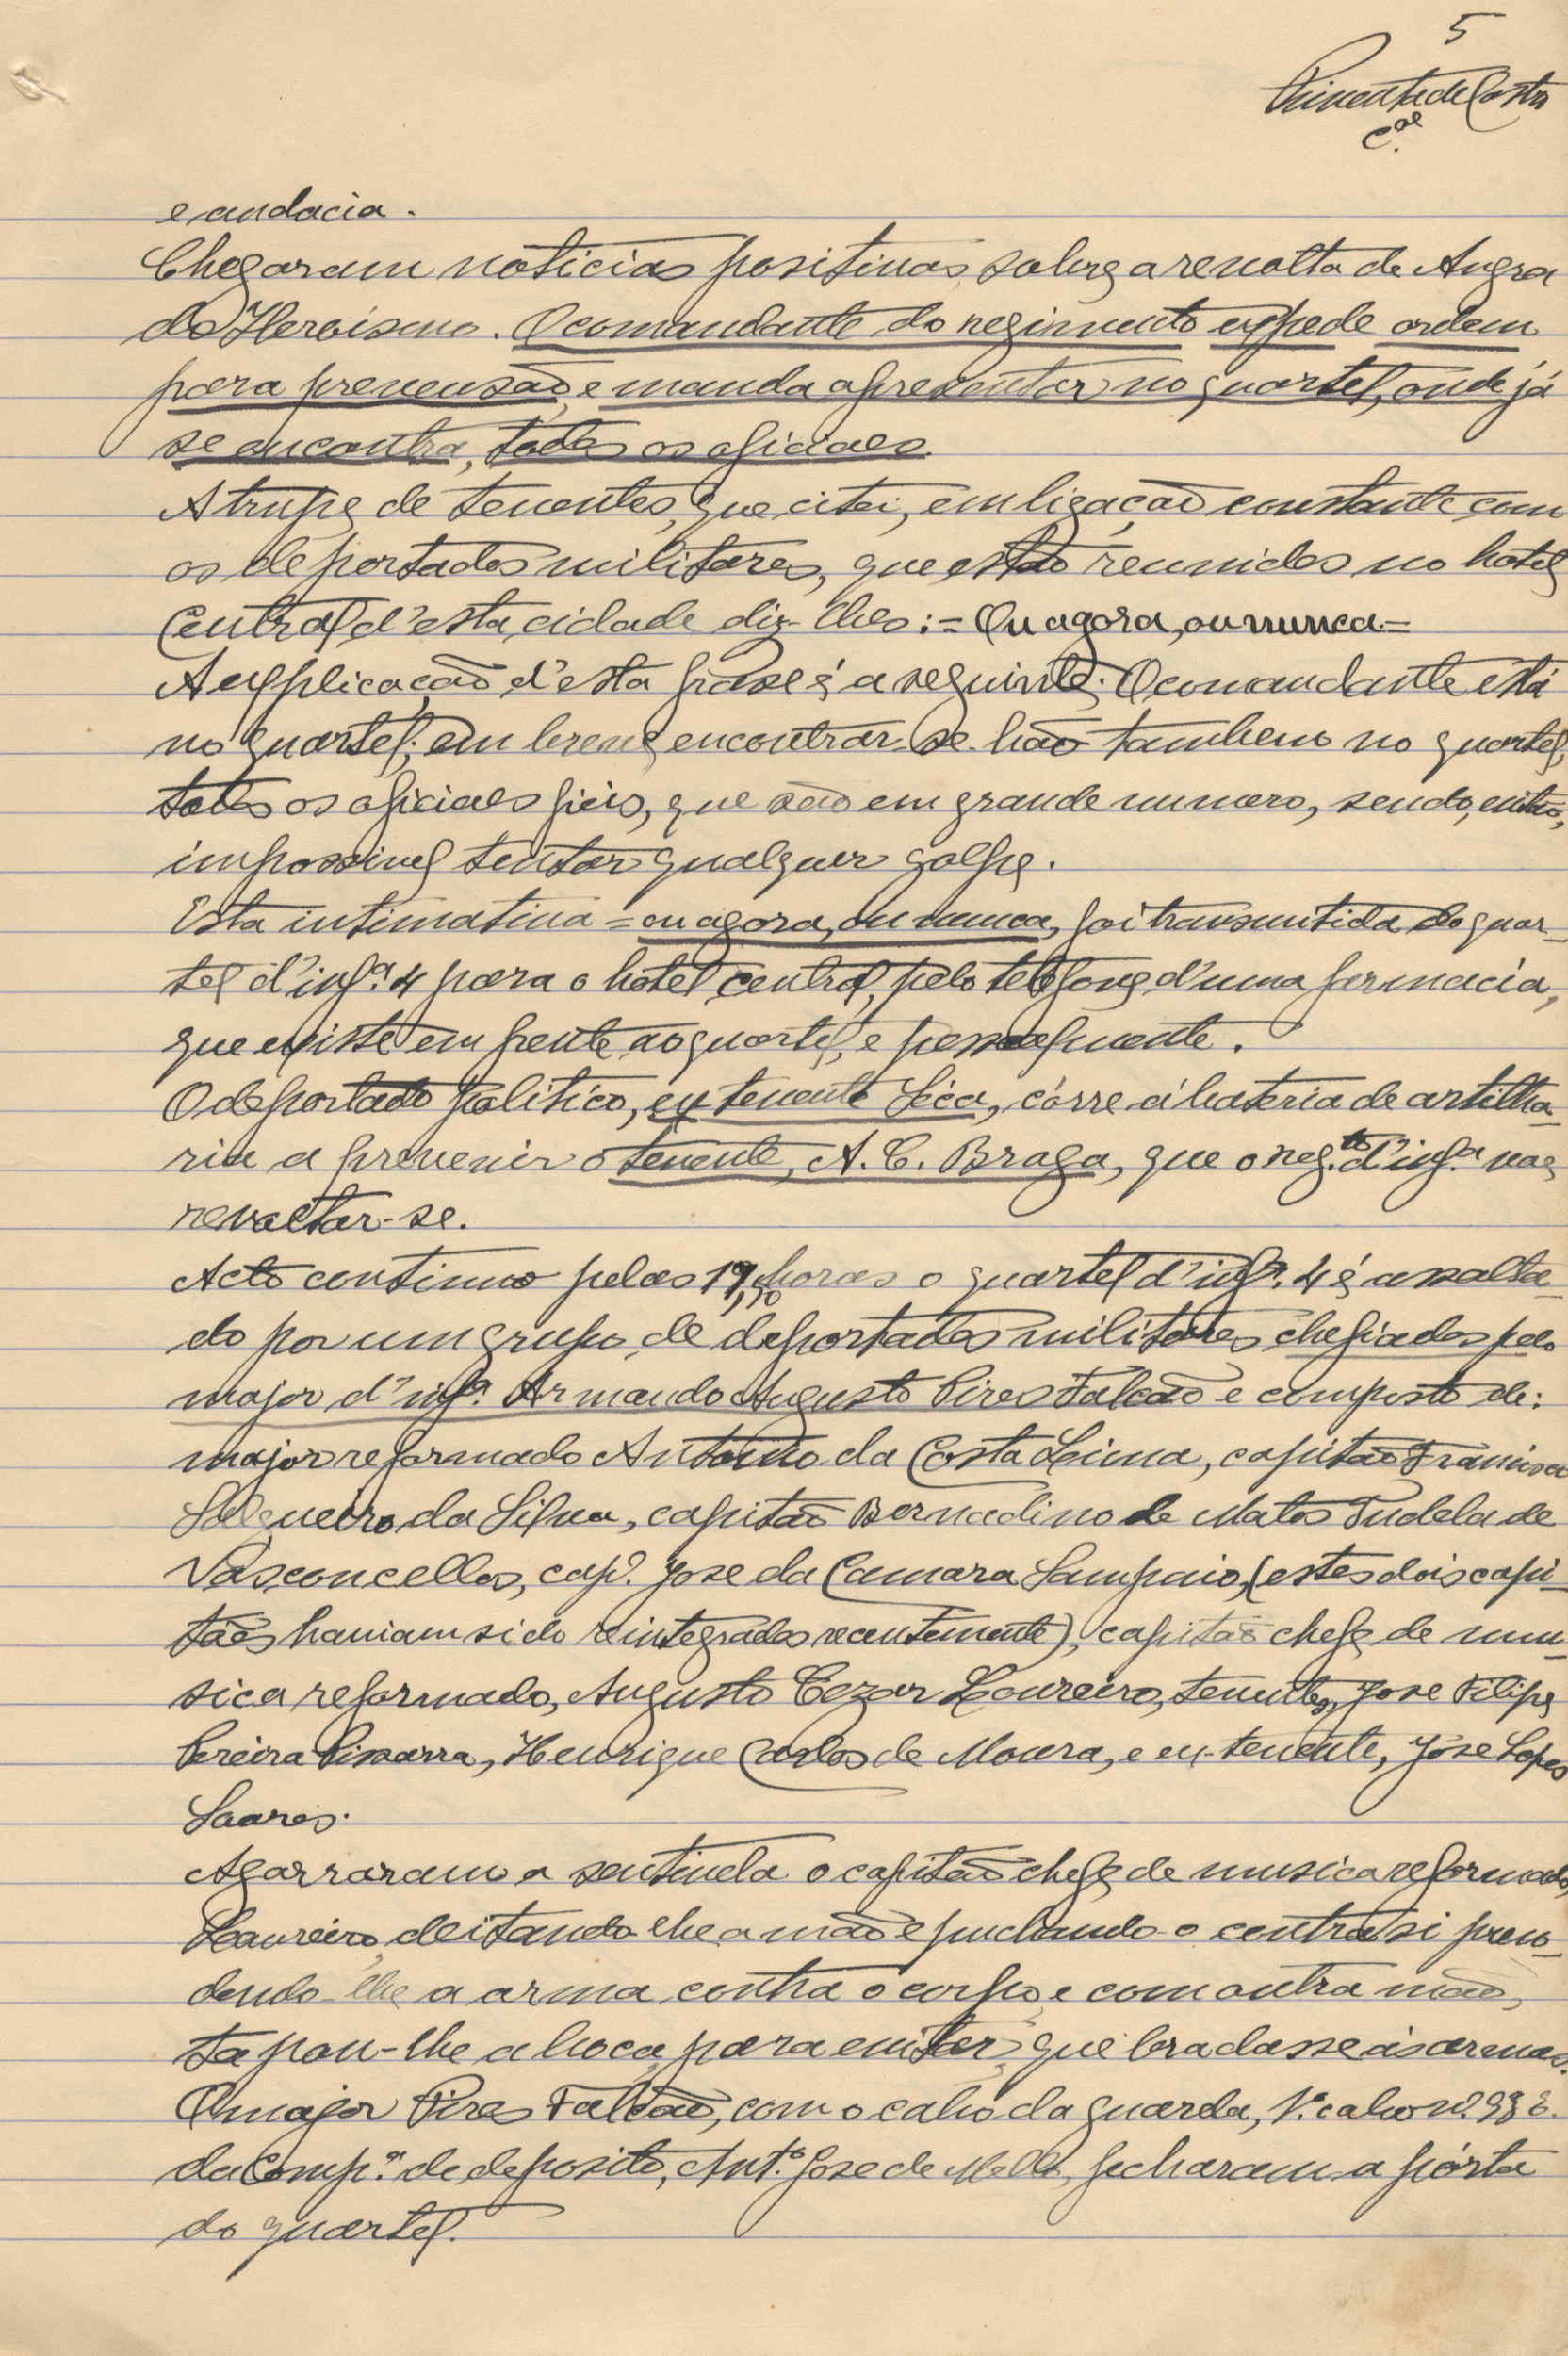 5
Pimenta de Castro
C.el
e audacia.
Chegaram noticias positivas sobre a revolta de Angra
do Heroismo. O comandante do regimento expede ordem
para prevensão e manda apresentar no quartel, onde já
se encontra, todos os oficiaes.
A trupe de tenentes, que citei, em ligação constante com
os deportados militares, que estão reunidos no hotel
Central d'esta cidade diz-lhes:= Ou agora, ou nunca=
A explicação d'esta frase é a seguinte: O comandante está
no quartel; em breve encontrar-se-hão tambem no quartel,
todos os oficiaes fieis, que são em grande numero, sendo, então,
impossivel tentar qualquer golpe.
Esta intimativa = ou agora, ou nunca, foi transmitida do quar-
tel d'inf.ª 4 para o hotel central, pelo telefone d'uma farmacia,
que existe em frente ao quartel, e pessoalmente.
O deportado politico, ex tenente Séca, córre á bateria de artilha-
ria a prevenir o tenente, A. C. Braga, que o reg.to d'inf.ª vae
revoltar-se.
Acto continuo pelas 19,30 horas o quartel d'inf.ª 4 é assalta-
do por um grupo de deportados militares chefiados pelo
major d'inf.ª Armando Augusto Pires Falcão e composto de:
major reformado Antonio da Costa Lima, capitão Francisco
Salgueiro da Silva, capitão Bernadino de Matos Tudela de
Vasconcellos, cap. Jose da Camara Sampaio, (estes dois capi-
tães haviam sido reintegrados recentemente), capitão chefe de mu-
sica reformado, Augusto Cezar Loureiro, tenentes, Jose Filipe
Pereira Pissarra, Henrique Carlos de Moura, e ex-tenente, Jose Lopes
Soares.
Agarraram a sentinela o capitão chefe de musica reformado
Loureiro deitando-lhe a mão e puchando-o contra si pren-
dendo-lhe a arma contra o corpo e com outra mão,
tapou-lhe a boca para evitar que bradasse ás armas.
O major Pires Falcão, com o cabo da guarda, 1.º cabo n.º
da Comp.ª de deposito, Ant.º Jose de Mello, fecharam a pórta
do quartel.